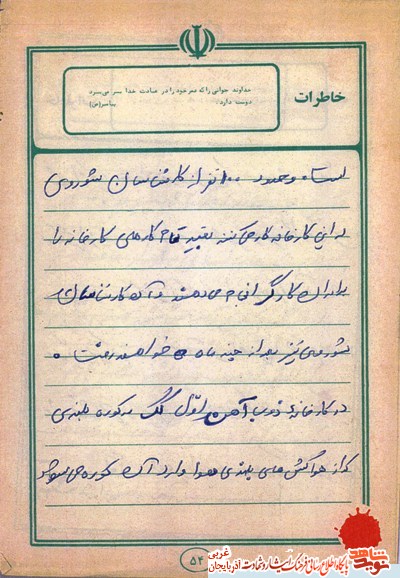 خاطرات
خداوند جوانی را که عمر خود را در عبادت خدا بسر می‌برد
دوست دارد. پیامبر(ص)
است و حدود ۱۰۰ نفر از کارشناسان شوروی
در این کارخانه کار می‌کنند بقیه تمام کارهای کارخانه را
برادران کارگر انجام می‌دهند و آن کارشناسان
شوروی نیز بعد از چند ماه خواهند رفت
در کارخانه ذوب آهن اول سنگ به کوره بلندی
که از هواکش‌های بلندی هوا وارد آن کوره می‌شود
۵۴
نوید شاهد
پایگاه اطلاع رسانی فرهنگ ایثار و شهادت آذربایجان غربی